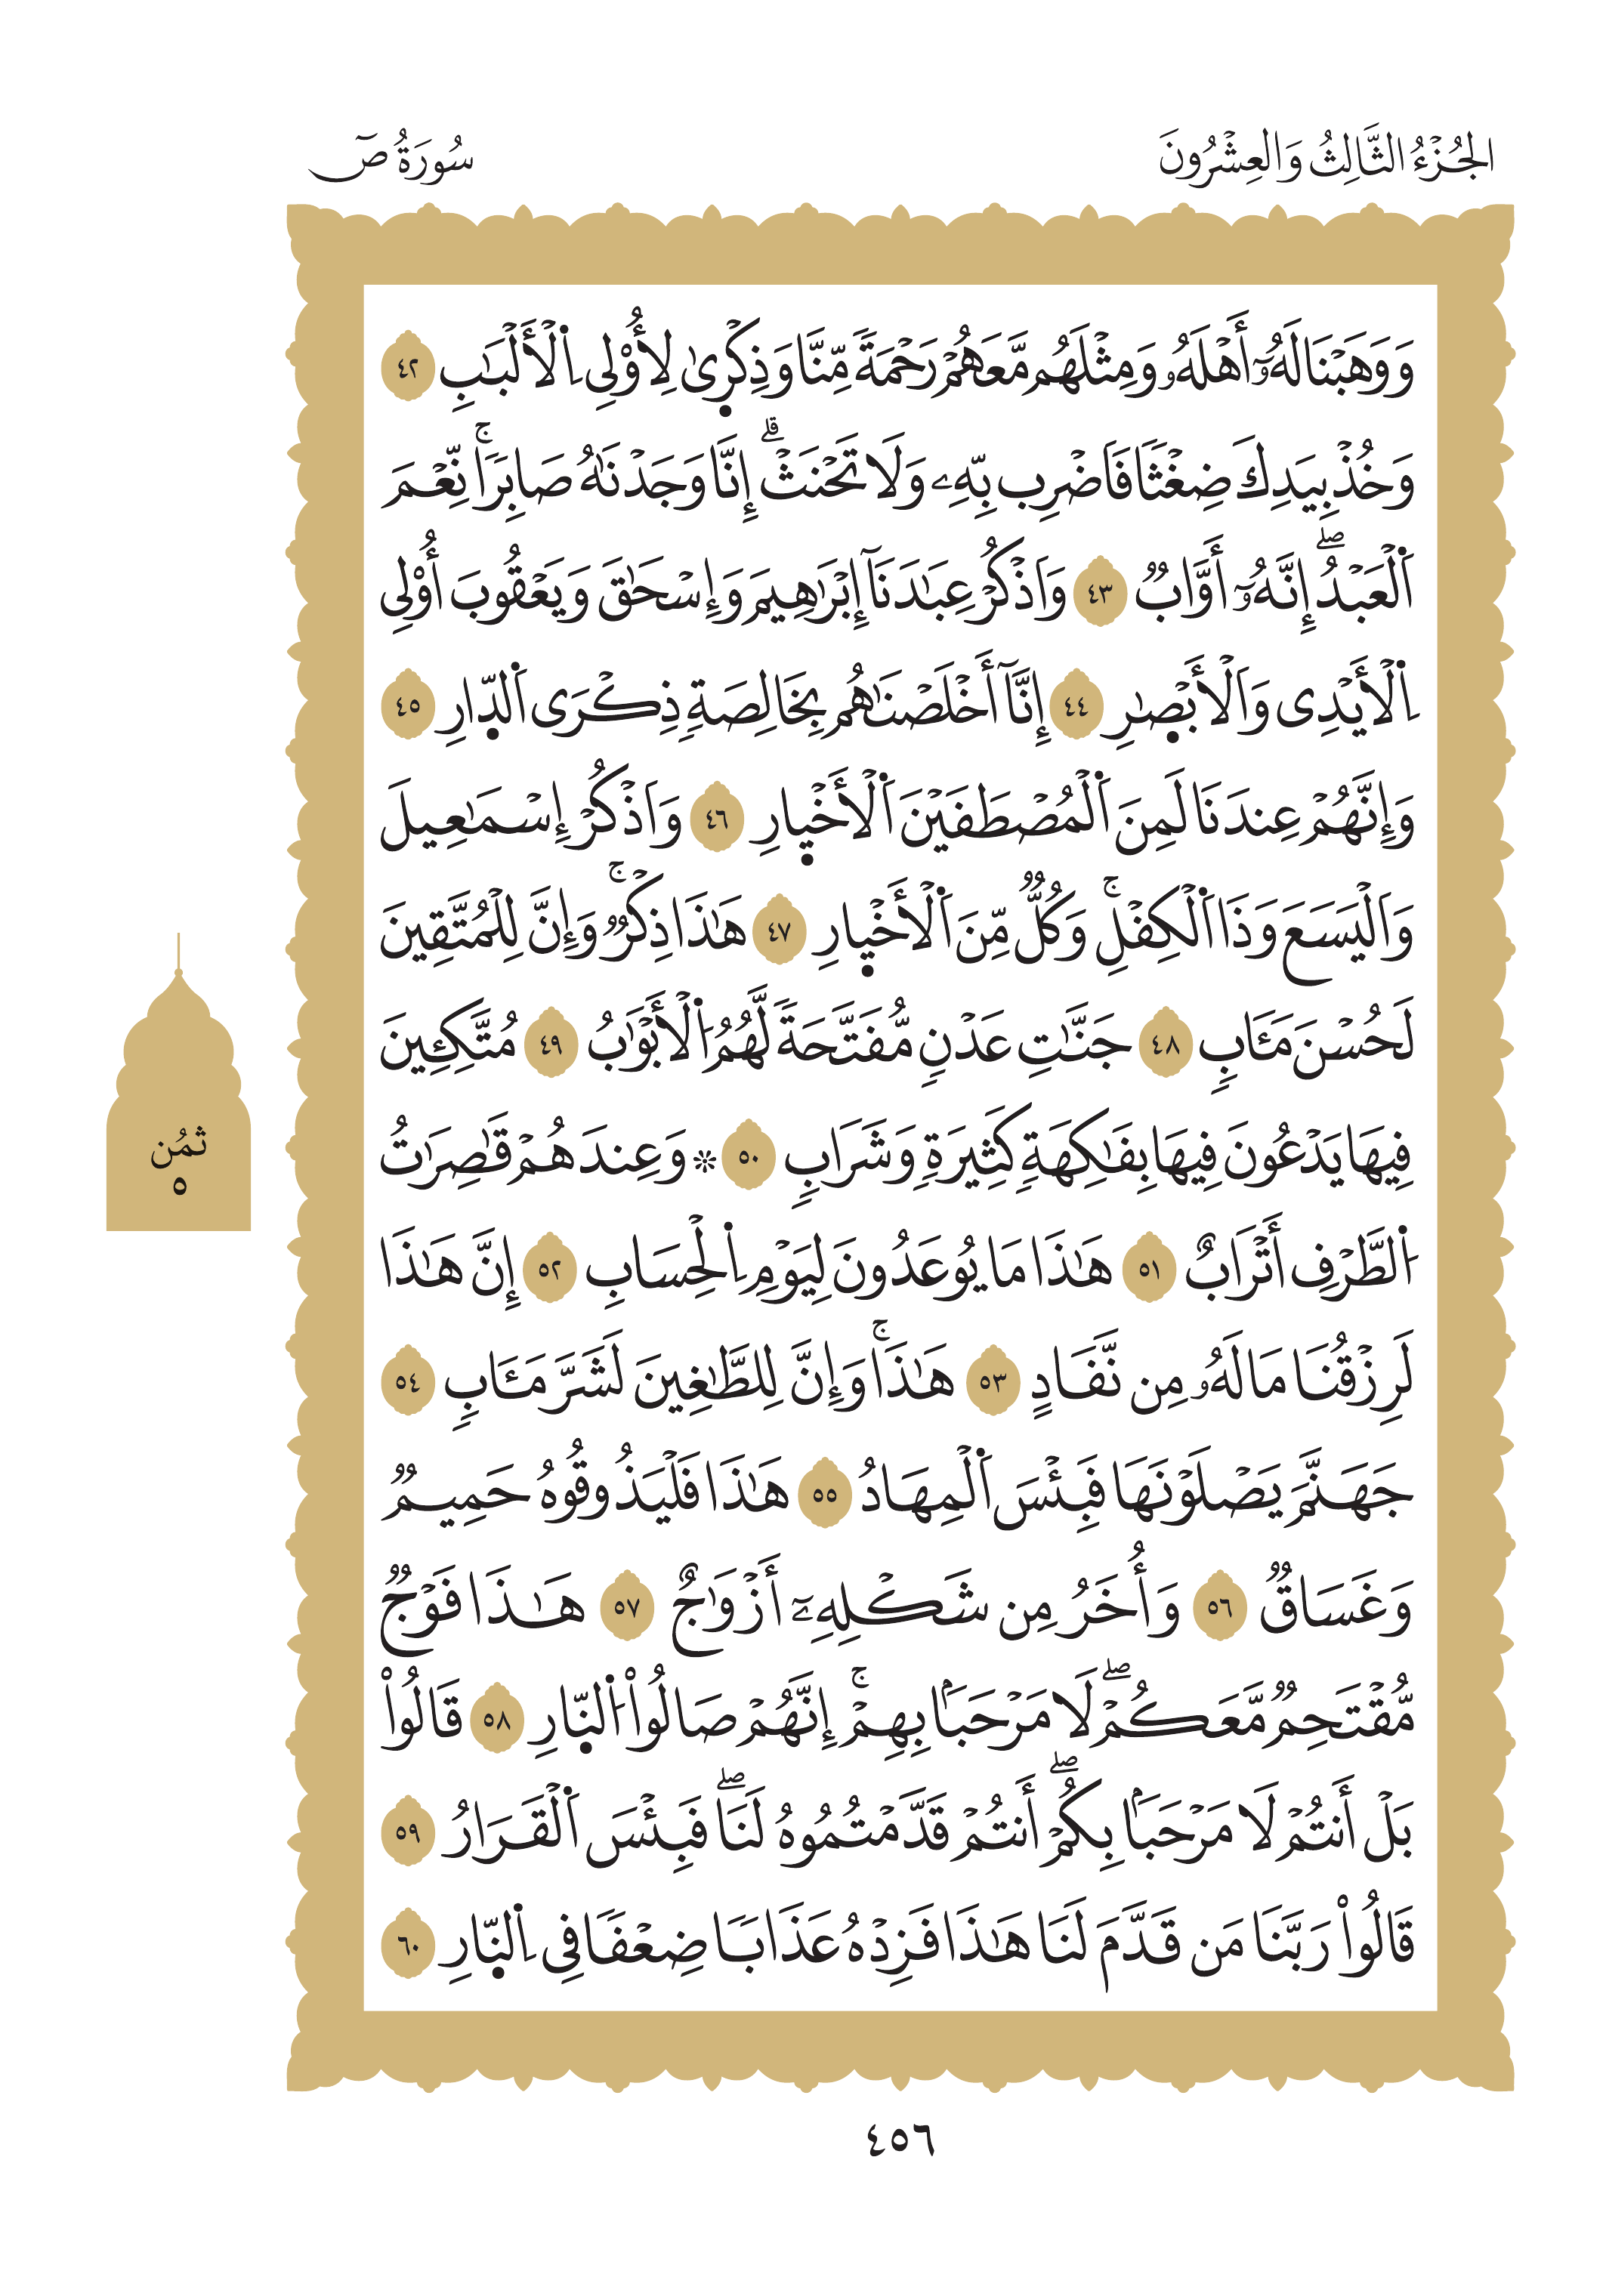 الجُزْءُ الثَّالِثُ وَالعِشْرُونَ
سُورَةُ صٓ
وَوَهَبْنَا لَهُۥٓ أَهْلَهُۥ وَمِثْلَهُم مَّعَهُمْ رَحْمَةً مِّنَّا وَذِكْر۪ىٰ لِأُوْلِى اِ۬لْأَلْبَٰبِ ٤٢
وَخُذْ بِيَدِكَ ضِغْثًا فَاضْرِب بِّهِۦ وَلَا تَحْنَثْۗ إِنَّا وَجَدْنَٰهُ صَابِرًاۚ نِّعْمَ
اَ۬لْعَبْدُۖ إِنَّهُۥٓ أَوَّابٌ ٤٣ وَاَذْكُرْ عِبَٰدَنَآ إِبْرَٰهِيمَ وَإِسْحَٰقَ وَيَعْقُوبَ أُوْلِى
اِ۬لْأَيْدِى وَاَلْأَبْصٰ۪رِ ٤٤ إِنَّآ أَخْلَصْنَٰهُم بِخَالِصَةٍ ذِكْرَى اَ۬لدّ۪ارِ ٤٥
وَإِنَّهُمْ عِندَنَا لَمِنَ اَ۬لْمُصْطَفَيْنَ اَ۬لْأَخْي۪ارِ ٤٦ وَاَذْكُرْ إِسْمَٰعِيلَ
وَاَلْيَسَعَ وَذَا اَ۬لْكِفْلِۚ وَكُلٌّ مِّنَ اَ۬لْأَخْي۪ارِ ٤٧ هَٰذَا ذِكْرٌۚ وَإِنَّ لِلْمُتَّقِينَ
لَحُسْنَ مَـَٔابٍ ٤٨ جَنَّٰتِ عَدْنٍ مُّفَتَّحَةً لَّهُمُ اُ۬لْأَبْوَٰبُ ٤٩ مُتَّكِـِٔينَ
فِيهَا يَدْعُونَ فِيهَا بِفَٰكِهَةٍ كَثِيرَةٍ وَشَرَابٍ ٥٠ ۞ وَعِندَهُمْ قَٰصِرَٰتُ
اُ۬لطَّرْفِ أَتْرَابٌ ٥١ هَٰذَا مَا يُوعَدُونَ لِيَوْمِ اِ۬لْحِسَابِ ٥٢ إِنَّ هَٰذَا
لَرِزْقُنَا مَا لَهُۥ مِن نَّفَادٍ ٥٣ هَٰذَاۚ وَإِنَّ لِلطَّٰغِينَ لَشَرَّ مَـَٔابٍ ٥٤
جَهَنَّمَ يَصْلَوْنَهَا فَبِئْسَ اَ۬لْمِهَادُ ٥٥ هَٰذَا فَلْيَذُوقُوهُ حَمِيمٌ
وَغَسَاقٌ ٥٦ وَأُخَرُ مِن شَكْلِهِۦٓ أَزْوَٰجٌ ٥٧ هَٰذَا فَوْجٌ
مُّقْتَحِمٌ مَّعَكُمْۖ لَا مَرْحَبَۢا بِهِمْۚ إِنَّهُمْ صَالُواْ اُ۬لنّ۪ارِ ٥٨ قَالُواْ
بَلْ أَنتُمْ لَا مَرْحَبَۢا بِكُمْۖ أَنتُمْ قَدَّمْتُمُوهُ لَنَاۖ فَبِئْسَ اَ۬لْقَرَارُ ٥٩
قَالُواْ رَبَّنَا مَن قَدَّمَ لَنَا هَٰذَا فَزِدْهُ عَذَابًا ضِعْفًا فِى اِ۬لنّ۪ارِ ٦٠
ثمُن
٥
٤٥٦